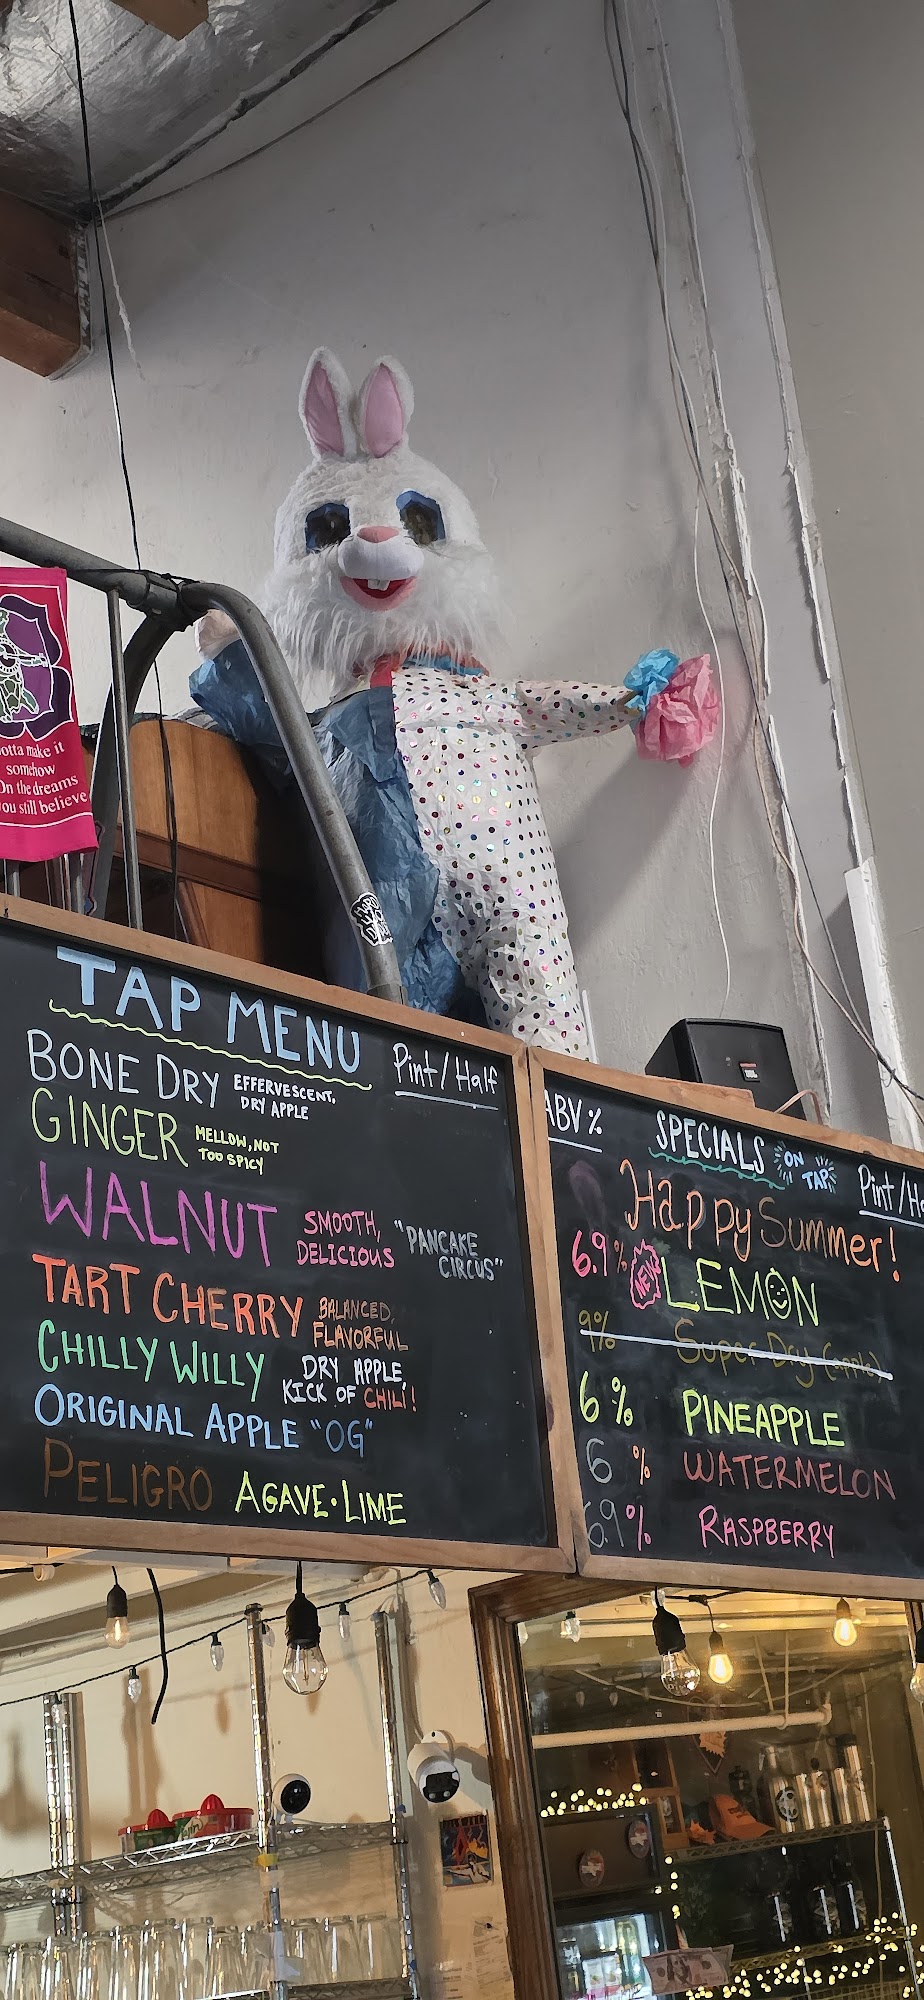 otta make it
somehow
On the dreams
you still believe
TAP MENU
Pint / Half
BONE DRY EFFERVESCENT,
DRY APPLE
GINGER MELLOW, NOT
TOO SPICY
WALNUT SMOOTH,
DELICIOUS "PANCAKE
CIRCUS"
TART CHERRY BALANCED,
FLAVORFUL
CHILLY WILLY DRY APPLE,
KICK OF CHILI!
ORIGINAL APPLE "OG"
PELIGRO AGAVE·LIME
ABV % SPECIALS ON
TAP Pint / Ha
Happy Summer!
6.9% NEW LEMON
9% Super Dry (apple)
6% PINEAPPLE
6% WATERMELON
6.9% RASPBERRY